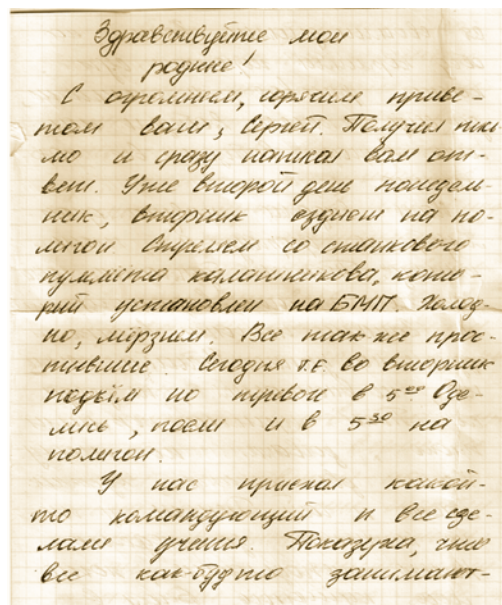 Здравствуйте мои
родные!
С огромным, горячим приве-
том вам, Сергей. Получил пись
мо и сразу написал вам от-
вет. Уже второй день понедель-
ник, вторник ездием на по-
лигон Стреляем со станкового
пулемета калашникова, кото-
рый установлен на БМП. Холод-
но, мёрзнем. Все так же прос-
тывшие. Сегодня т.е. во вторник
подъём по тревоге в 5⁰⁰ Оде-
лись, поели и в 5³⁰ на
полигон.
У нас приехал какой-
то командующий и все сде-
лали учения. Показуха, что
все как-будто занимают-